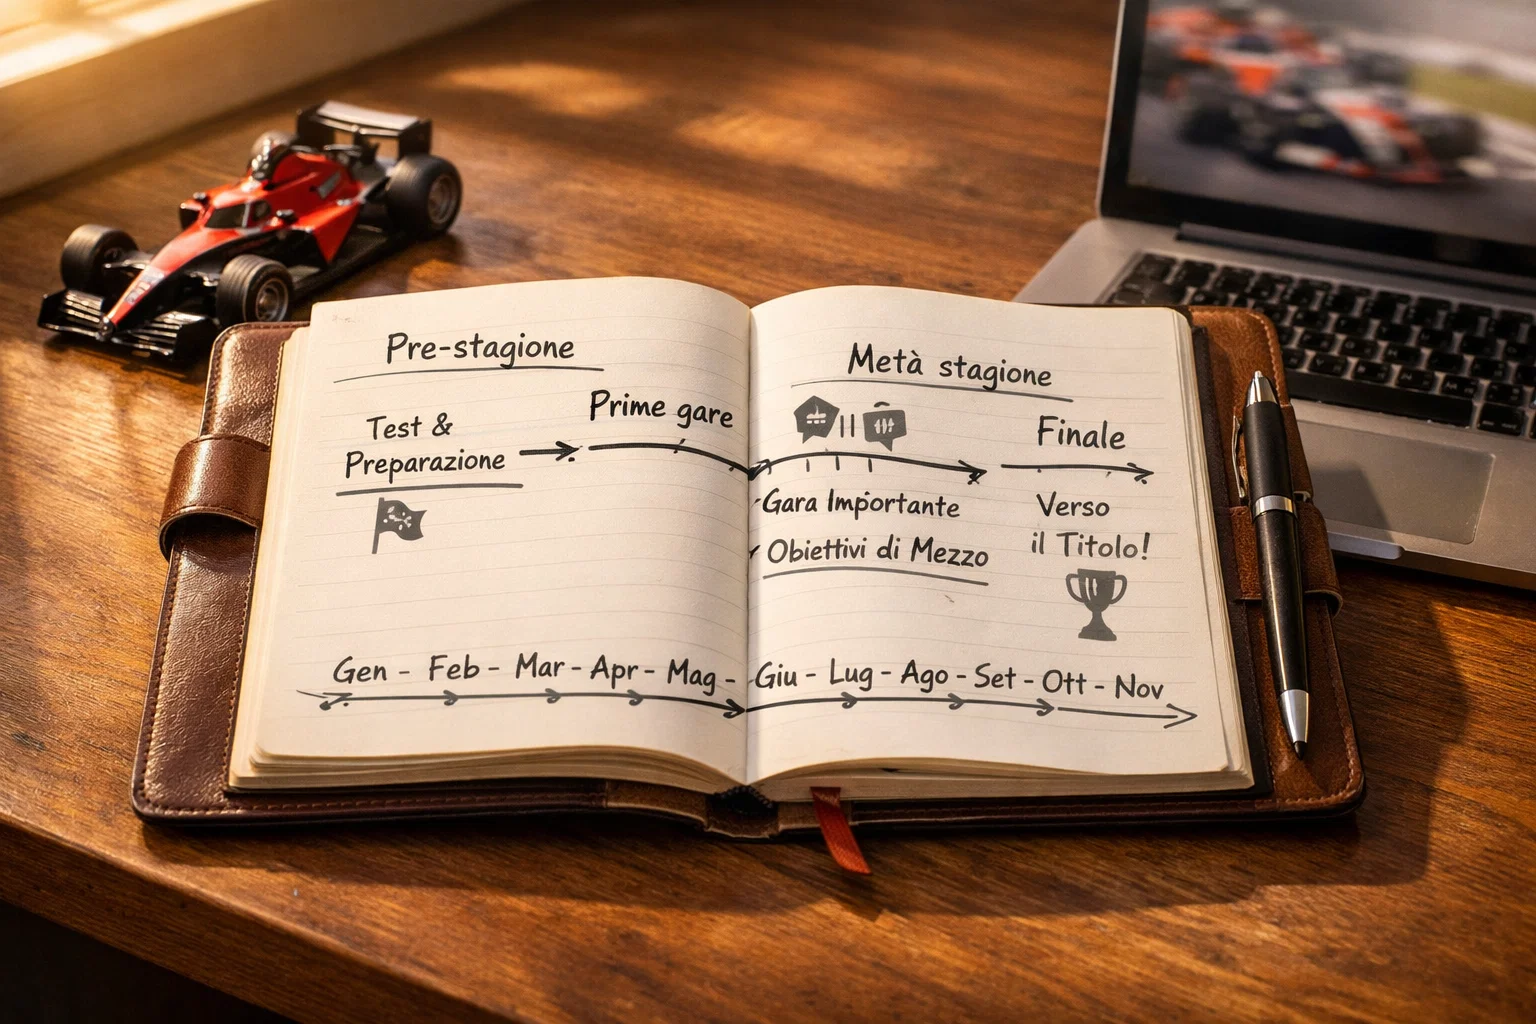 Pre-stagione
Test &
Preparazione
Prime gare
Gen - Feb - Mar - Apr - Mag -
Metà stagione
Finale
Gara Importante
Obiettivi di Mezzo
Verso
il Titolo!
Giu - Lug - Ago - Set - Ott - Nov